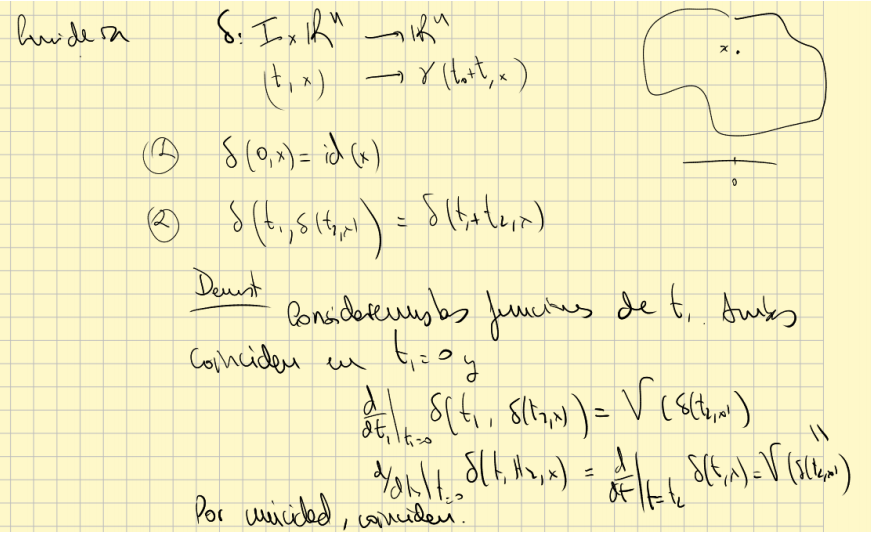 δ: I × ℝⁿ → ℝⁿ
(t, x) → γ(t₀+t, x)
x
① δ(0,x) = id(x)
0
② δ(t₁, δ(t₂,x)) = δ(t₁+t₂,x)
Demost
Consideremos las funciones de t₁. Ambas
coinciden en t₁=0 y
d/dt₁|t₁=0 δ(t₁, δ(t₂,x)) = V(δ(t₂,x))
d/dt₁|t₁=0 δ(t₁+t₂,x) = d/dt|t=t₂ δ(t,x) = V(δ(t₂,x))
Por unicidad, coinciden.